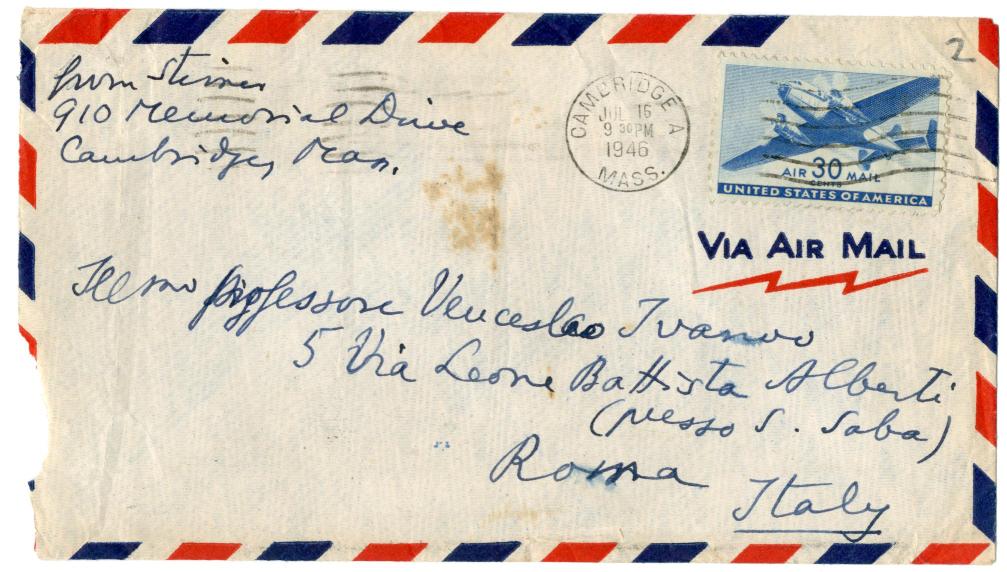 from Steiner
910 Memorial Drive
Cambridge, Mass.
CAMBRIDGE A
JUL 16
9 30 PM
1946
MASS.
2
AIR 30 MAIL
CENTS
UNITED STATES OF AMERICA
VIA AIR MAIL
Illmo professore Venceslao Ivanov
5 Via Leone Battista Alberti
(presso S. Saba)
Roma
Italy